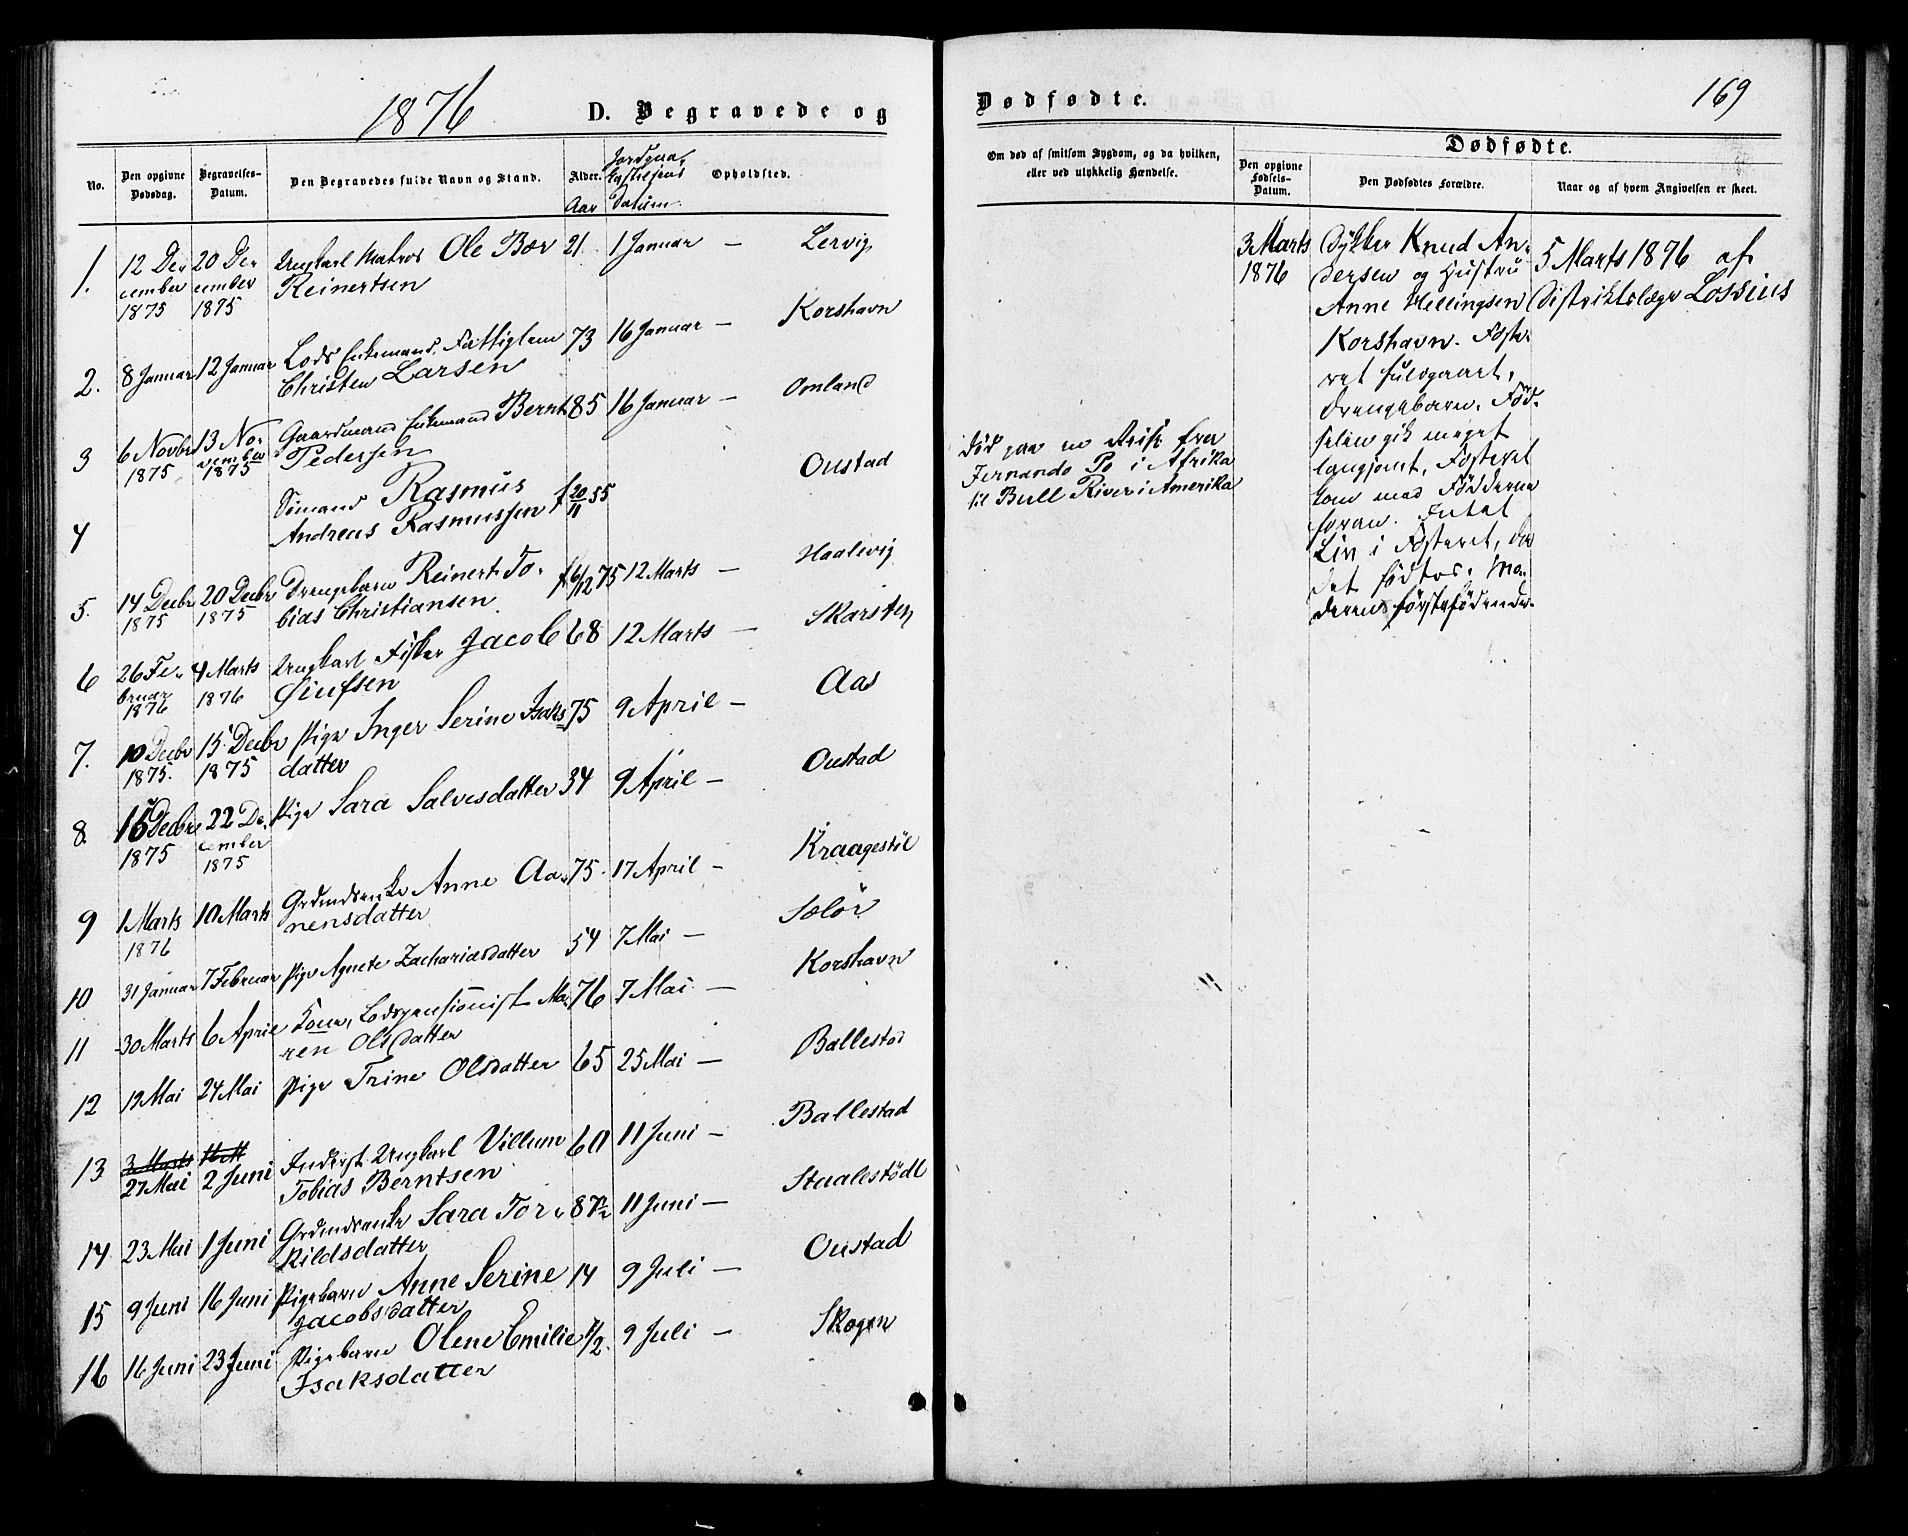 1876
D. Begravede og
No.
Den opgivne Dødsdag.
Begravelses-Datum.
Den Begravedes fulde Navn og Stand.
Alder.
Aar
Jordpaa-
kastelsens
Datum.
Opholdsted.
1. 12 De- 20 De- Ungkarl Matros Ole Bær 21 1 Januar — Lervig
cember cember Reinertsen
1875 1875
2. 8 Januar 12 Januar Lods Enkemand, Fattiglem 73 16 Januar — Korshavn
Christen Larsen
3 6 Novbr 13 No- Gaardmand Enkemand Bernt 85 16 Januar — Omland
1875 vember 1875 Pedersen
4 Sömand Rasmus f 20/11 55 Oustad
Andreas Rasmussen
5. 14 Decbr 20 Decbr Drengebarn Reinert To- f 6/12 75 12 Marts — Haalevig
1875 1875 bias Christiansen
6 26 Fe- 4 Marts Ungkarl Fisker Jacob 68 12 Marts — Skarsten
bruar 1876 1876
7. 10 Decbr 15 Decbr Pige Inger Serine Isaks- 75 9 April — Aas
1875. 1875 datter
8. 15 Decbr 22 De- Pige Sara Salvesdatter 34 9 April — Oustad
1875 cember 1875
9 1 Marts 10 Marts Grdmdsenke Anne Aa- 75. 17 April — Kraagestöl
1876 nensdatter
10 31 Januar 7 Februar Pige Agnete Zachariasdatter 54 7 Mai — Selör
11 30 Marts 6 April Kone, Lodspensionist Ma- 76 7 Mai — Korshavn
ren Olsdatter
12 19 Mai 24 Mai Pige Trine Olsdatter 65 25 Mai — Ballestad
13 3 Marts 27 Mai 2 Juni Inderst Ungkarl Villum 60 11 Juni — Ballestad
Tobias Berntsen
14 23 Mai 1 Juni Grdmdsenke Sara Tor- 87 1/2 11 Juni — Staalestödl
kildsdatter
15 9 Juni 16 Juni Pigebarn Anne Serine 14 9 Juli — Oustad
Jacobsdatter
16 16 Juni 23 Juni Pigebarn Olene Emilie 1/2. 9 Juli — Skogen
Isaksdatter
Dødfødte.
169
Om død af smitsom Sygdom, og da hvilken,
eller ved ulykkelig Hændelse.
Dødfødte.
Den opgivne Fødsels-Datum.
Den Dødfødtes Forældre.
Naar og af hvem Angivelsen er skeet.
död paa en Reise fra
Fernando Po i Afrika
til Bull River i Amerika
3 Marts
1876
Dykker Knud An-
dersen og Hustru
Anne Hellingsen
Korshavn. Foste-
ret fuldgaaet,
Drengebarn. Föd-
selen gik meget
langsomt, Fosteret
kom med Födderne
foran. Intet
Liv i Fosteret, da
det födtes. Mo-
deren förstefödende.
5 Marts 1876 af
Distriktslæge Lossius